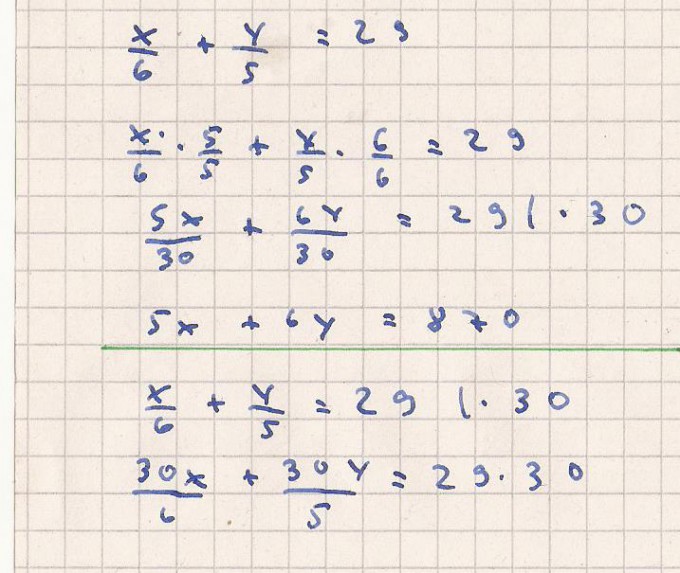 x/6 + y/5 = 29
x/6 · 5/5 + y/5 · 6/6 = 29
5x/30 + 6y/30 = 29 | · 30
5x + 6y = 870
x/6 + y/5 = 29 | · 30
30x/6 + 30y/5 = 29 · 30